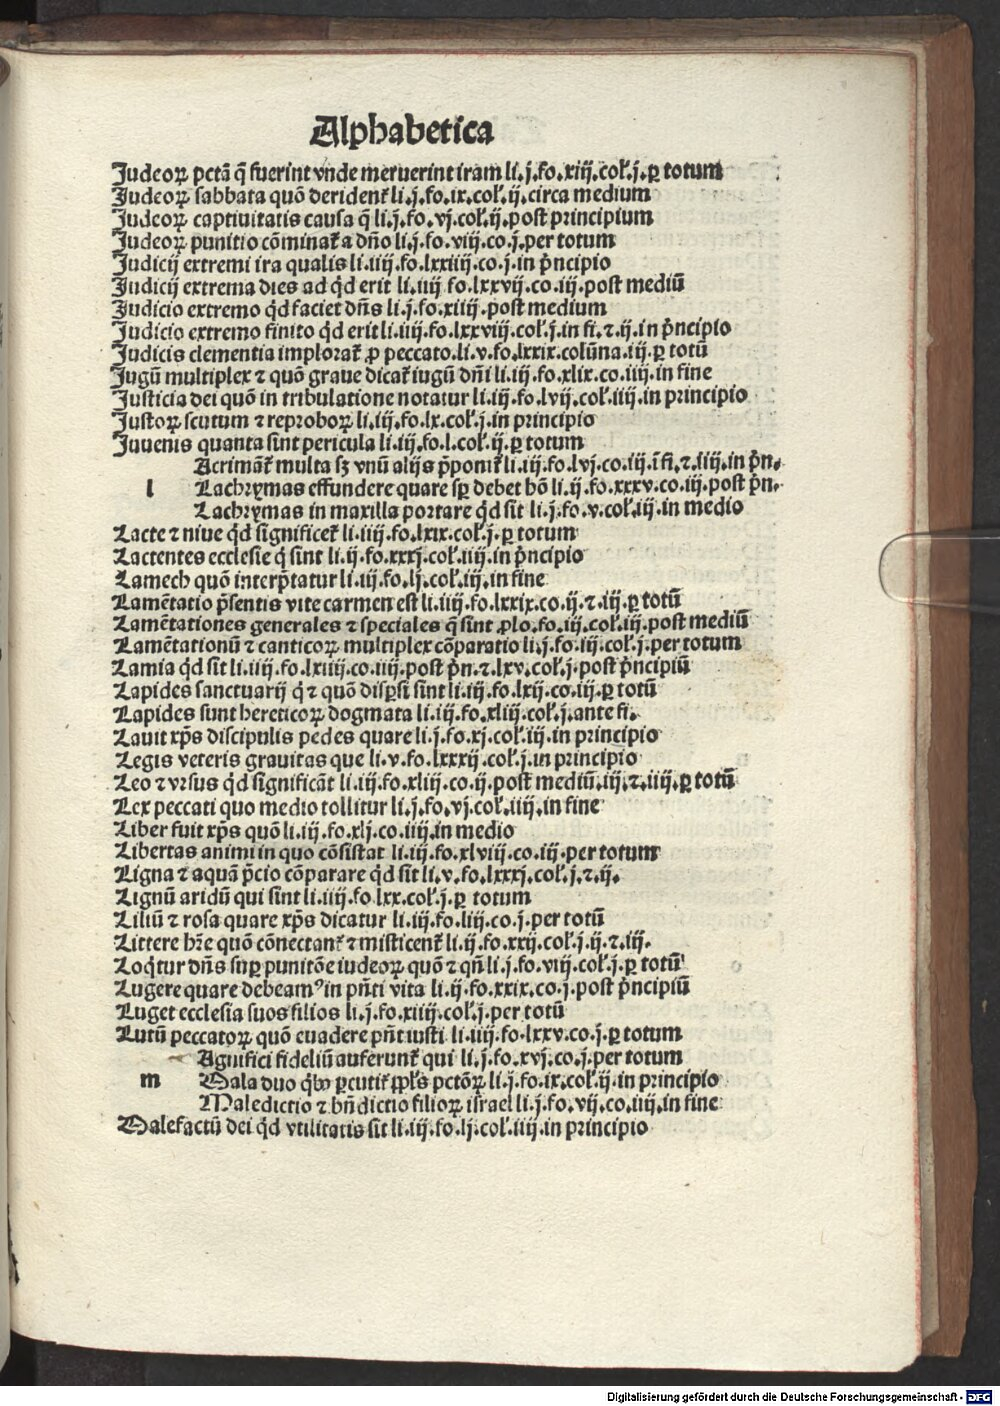 Alphabetica
Judeoꝝ pctā q̄ fuerint vnde meruerint iram li.j.fo.xiij.col'.j.ꝑ totum
Judeoꝝ sabbata quō deridenť li.j.fo.ix.col'.ij.circa medium
Judeoꝝ captiuitatis causa q̄ li.j.fo.vj.col'.ij.post principium
Judeoꝝ punitio cōminať a dño li.j.fo.viij.co.j.per totum
Judicij extremi ira qualis li.iiij.fo.lxxiiij.co.j.in p̄ncipio
Judicij extrema dies ad qd̓ erit li.iiij.fo.lxxvij.co.iij.post mediū
Judicio extremo qd̓ faciet dñs li.j.fo.xiiij.post medium
Judicio extremo finito qd̓ erit li.iiij.fo.lxxviij.col'.j.in fi.⁊.ij.in p̄ncipio
Judicis clementia implorať ꝓ peccato.li.v.fo.lxxix.colūna.iij.ꝑ totū
Jugū multiplex ⁊ quō graue dicať iugū dñi li.iij.fo.xlix.co.iiij.in fine
Justicia dei quō in tribulatione notatur li.iij.fo.lvij.col'.iiij.in principio
Justoꝝ scutum ⁊ reproboꝝ li.iij.fo.lx.col'.j.in principio
Juuenis quanta sint pericula li.iij.fo.l.col'.ij.ꝑ totum
Acrimāť multa sꝫ vnū alijs p̄poniť li.iij.fo.lvj.co.iij.ī fi.⁊.iiij.in p̄n.
l Lachrymas effundere quare sꝑ debet hō li.ij.fo.xxxv.co.iij.post p̄n.
Lachrymas in maxilla portare qd̓ sit li.j.fo.v.col'.iij.in medio
Lacte ⁊ niue qd̓ significeť li.iiij.fo.lxix.col'.j.ꝑ totum
Lactentes ecclesie q̓ sint li.ij.fo.xxxj.col'.iiij.in p̄ncipio
Lamech quō interp̄tatur li.iij.fo.lj.col'.iij.in fine
Lamētatio p̄sentis vite carmen est li.iiij.fo.lxxix.co.ij.⁊.iij.ꝑ totū
Lamētationes generales ⁊ speciales q̄ sint ꝓlo.fo.iij.col'.iij.post mediū
Lamētationū ⁊ canticoꝝ multiplex cōparatio li.j.fo.iij.col'.j.per totum
Lamia qd̓ sit li.iiij.fo.lxiiij.co.iiij.post p̄n.⁊.lxv.col'.j.post p̄ncipiū
Lapides sanctuarij q̓ ⁊ quō disꝑsi sint li.iij.fo.lxij.co.iij.ꝑ totū
Lapides sunt hereticoꝝ dogmata li.iij.fo.xliij.col'.j.ante fi.
Lauit xp̄s discipulis pedes quare li.j.fo.xj.col'.iij.in principio
Legis veteris grauitas que li.v.fo.lxxxij.col'.j.in principio
Leo ⁊ vrsus qd̓ significāt li.iij.fo.xliij.co.ij.post mediū.iij.⁊.iiij.ꝑ totū
Lex peccati quo medio tollitur li.j.fo.vj.col'.iiij.in fine
Liber fuit xp̄s quō li.iij.fo.xlj.co.iiij.in medio
Libertas animi in quo cōsistat li.iij.fo.xlviij.co.iij.per totum
Ligna ⁊ aquā p̄cio cōparare qd̓ sit li.v.fo.lxxxj.col'.j.⁊.ij.
Lignū aridū qui sint li.iiij.fo.lxx.col'.j.ꝑ totum
Liliū ⁊ rosa quare xp̄s dicatur li.iij.fo.liij.co.j.per totū
Littere hr̄e quō cōnectanť ⁊ misticenť li.ij.fo.xxij.col'.j.ij.⁊.iij.
Loqťur dñs suꝑ punitōe iudeoꝝ quō ⁊ qñ li.j.fo.viij.col'.j.ꝑ totū
Lugere quare debeamꝰ in pn̄ti vita li.ij.fo.xxix.co.j.post p̄ncipiū
Luget ecclesia suos filios li.j.fo.xiiij.col'.j.per totū
Lutū peccatoꝝ quō euadere pn̄t iusti li.iiij.fo.lxxv.co.j.ꝑ totum
Agnifici fideliū auferunť qui li.j.fo.xvj.co.j.per totum
m Mala duo qb̓ ꝑcutiť ppl̄s pctōꝝ li.j.fo.ix.col'.ij.in principio
Maledictio ⁊ bn̄dictio filioꝝ israel li.j.fo.vij.co.iiij.in fine
Malefactū dei qd̓ vtilitatis sit li.iij.fo.lj.col'.iiij.in principio
Digitalisierung gefördert durch die Deutsche Forschungsgemeinschaft - DFG